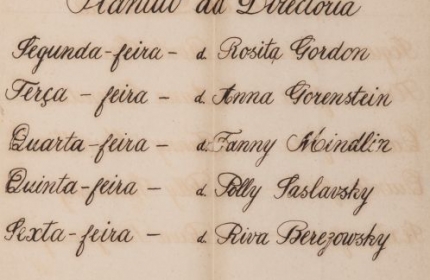 Plantão da Directoria
Segunda-feira - d. Rosita Gordon
Terça - feira - d. Anna Gorenstein
Quarta-feira - d. Fanny Mindlin
Quinta-feira - d. Polly Saslavsky
Sexta-feira - d. Riva Berezowsky